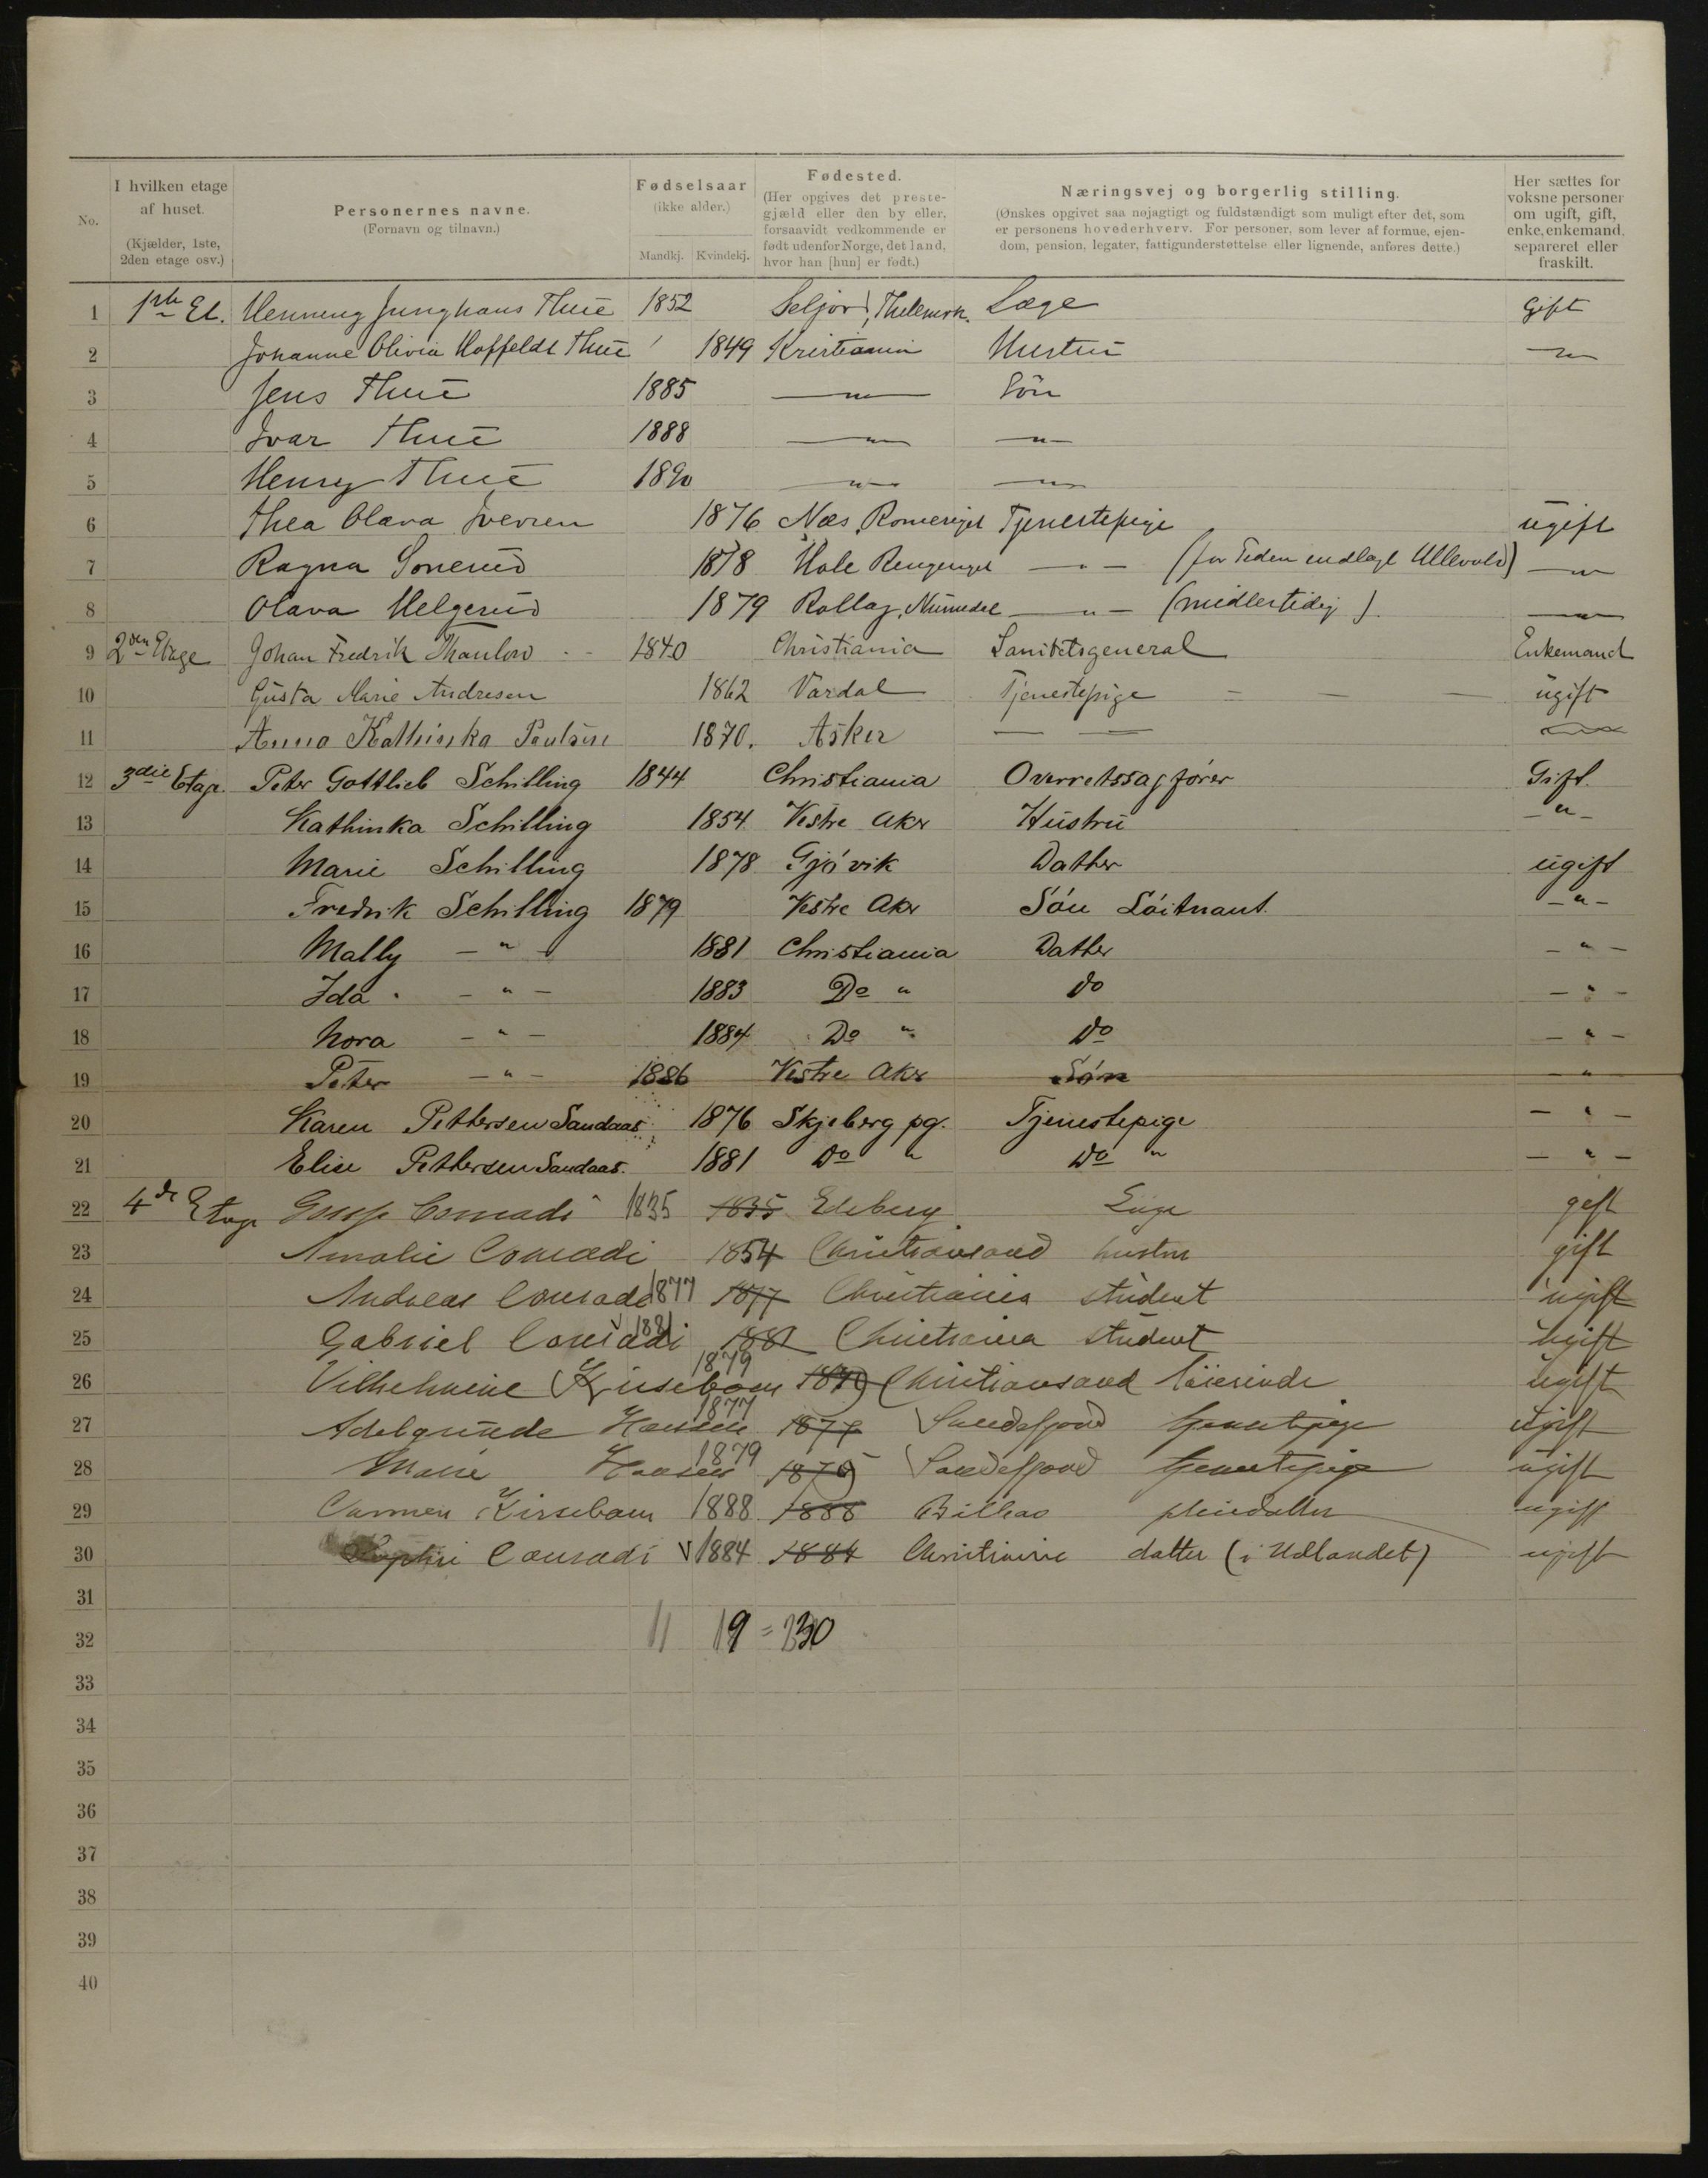 No.
I hvilken etage af huset.
(Kjælder, 1ste, 2den etage osv.)
Personernes navne.
(Fornavn og tilnavn.)
Fødselsaar
(ikke alder.)
Mandkj. Kvindekj.
Fødested.
(Her opgives det prestegjæld eller den by eller, forsaavidt vedkommende er født udenfor Norge, det land, hvor han [hun] er født.)
Næringsvej og borgerlig stilling.
(Ønskes opgivet saa nøjagtigt og fuldstændigt som muligt efter det, som er personens hovederhverv. For personer, som lever af formue, ejendom, pension, legater, fattigunderstøttelse eller lignende, anføres dette.)
Her sættes for voksne personer om ugift, gift, enke, enkemand, separeret eller fraskilt.
1 1ste Et. Henning Junghans Thue 1852 Seljord, Thelemrk. Læge Gift
2 Johanne Olivia Hoffeldt Thue 1849 Kristiania Hustru —"—
3 Jens Thue 1885 —"— Sön
4 Ivar Thue 1888 —"— —"—
5 Henry Thue 1890 —"— —"—
6 Thea Olava Iversen 1876 Næs, Romeriget Tjenestepige ugift
7 Ragna Sonerud 1878 Hole Ringeriget —"— (for Tiden indlagt Ullevold) —"—
8 Olava Helgerud 1879 Rollag, Numedal —"— (midlertidig) —"—
9 2den Etage Johan Fredrik Thaulow 1840 Christiania Sanitetsgeneral Enkemand
10 Gusta Marie Andresen 1862 Vardal Tjenestepige ugift
11 Anna Kathinka Paulsen 1870. Asker — —
12 3die Etage. Peter Gottlieb Schilling 1844 Christiania Overretssagförer Gift.
13 Kathinka Schilling 1854 Vestre Aker Hustru —"—
14 Marie Schilling 1878 Gjövik Datter ugift
15 Fredrik Schilling 1879 Vestre Aker Sön Löitnant. —"—
16 Mally —"— 1881 Christiania Datter —"—
17 Ida —"— 1883 Do " do —"—
18 Nora —"— 1884 Do " do —"—
19 Peter —"— 1886 Vestre Aker Sön —"—
20 Karen Pettersen Sandaas 1876 Skjeberg pg. Tjenestepige —"—
21 Elise Pettersen Sandaas. 1881 Do " Do " —"—
22 4de Etage Conradi 1835 1835 Læge gift
23 Amalie Conradi 1854 Christiansand hustru gift
24 Andreas Conradi 1877 1877 Christiania student ugift
25 Gabriel Conradi 1881 1881 Christiania student ugift
26 Vilhelmine Kirsebom 1879 1879 Christiansand lærerinde ugift
27 Adelgunde Hansen 1877 1877 Sandefjord tjenestepige ugift
28 Marie Hansen 1879 1879 Sandefjord tjenestepige ugift
29 Carmen Kirsebom 1888 1888 Bilbao pleiedatter ugift
30 Sophie Conradi 1884 1884 Christiania datter (i Udlandet) ugift
31
32 11 19 = 30
33
34
35
36
37
38
39
40